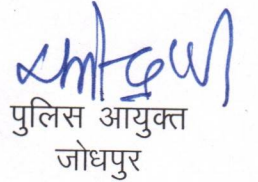 पुलिस आयुक्त
जोधपुर